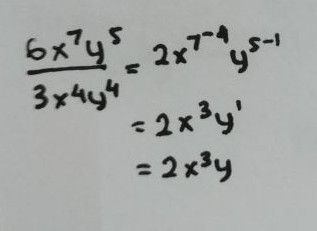 6x⁷y⁵/3x⁴y⁴ = 2x⁷⁻⁴y⁵⁻¹
= 2x³y¹
= 2x³y